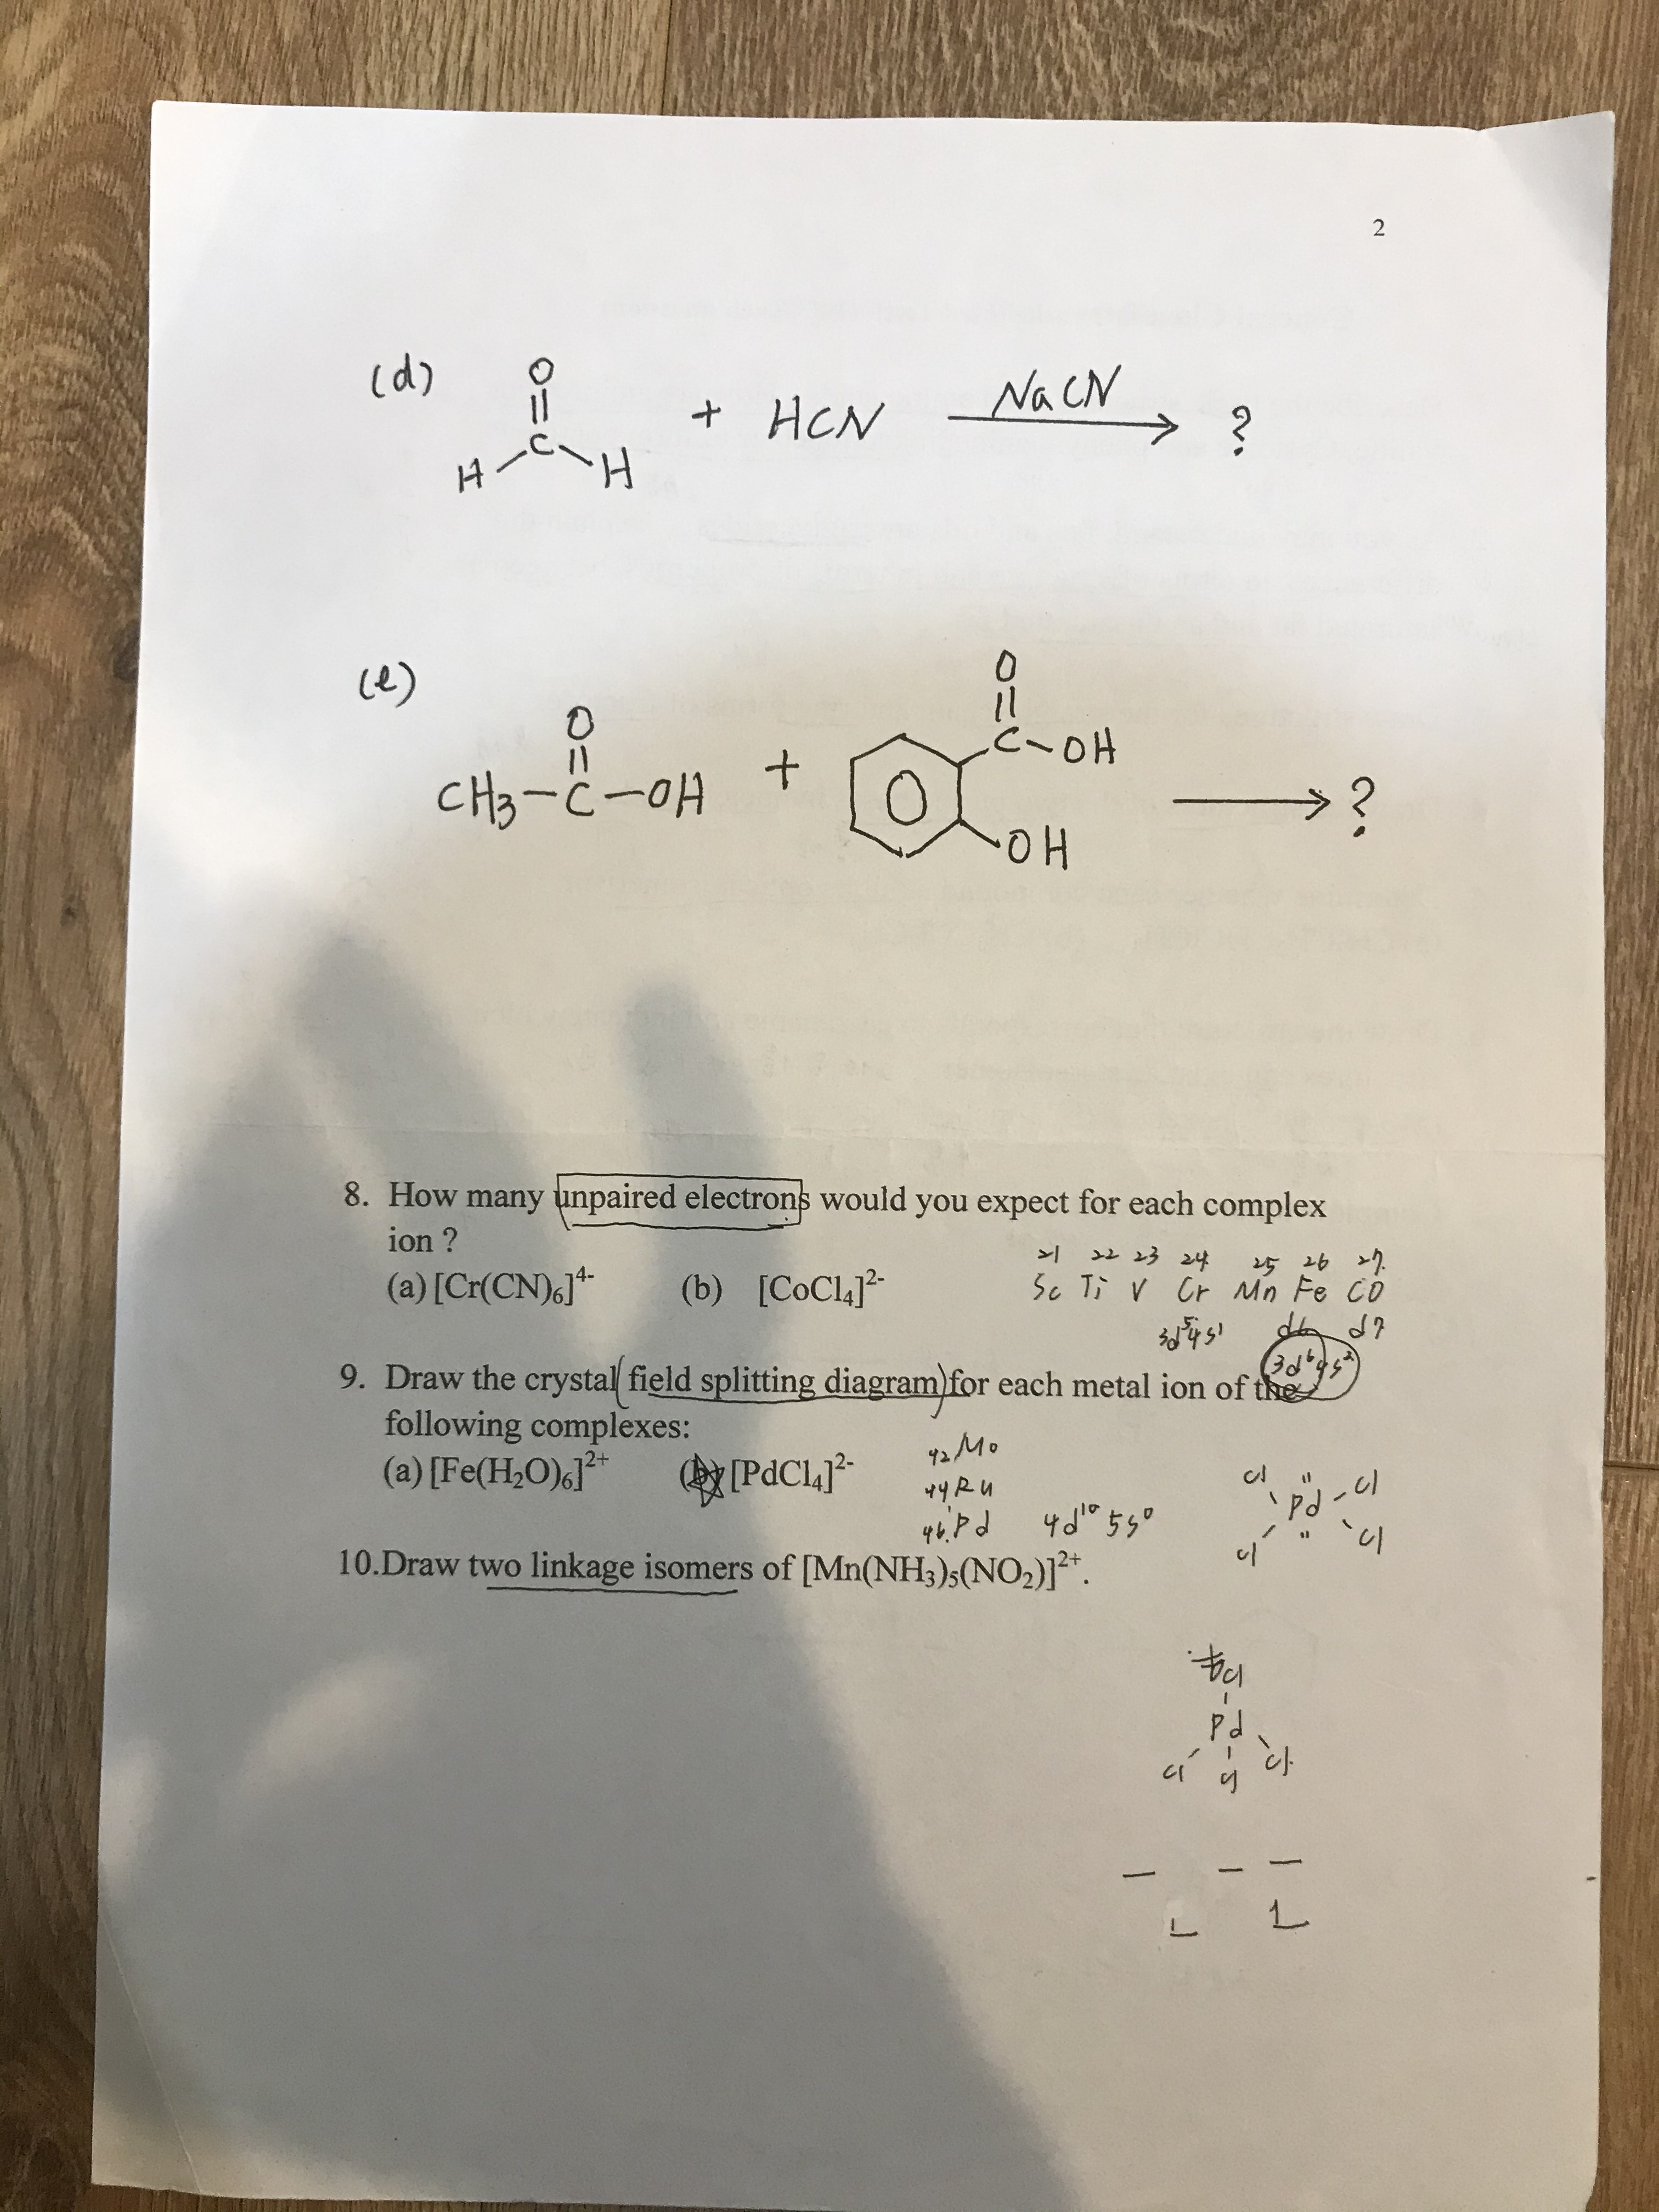 2
(d)
O
||
C
H H
+ HCN NaCN → ?
(e)
O
||
CH3-C-OH
+
O
||
C-OH
OH
→ ?
8. How many unpaired electrons would you expect for each complex
ion ?
(a) [Cr(CN)6]4- (b) [CoCl4]2-
21 22 23 24 25 26 27
Sc Ti V Cr Mn Fe CO
3d5 4s1 d6 d7
3d6 4s2
9. Draw the crystal (field splitting diagram) for each metal ion of the
following complexes:
(a) [Fe(H2O)6]2+ (b) [PdCl4]2-
42 Mo
44 Ru
46 Pd 4d10 5s0
Cl Cl
Pd
Cl Cl
10.Draw two linkage isomers of [Mn(NH3)5(NO2)]2+.
Cl
Pd
Cl Cl Cl